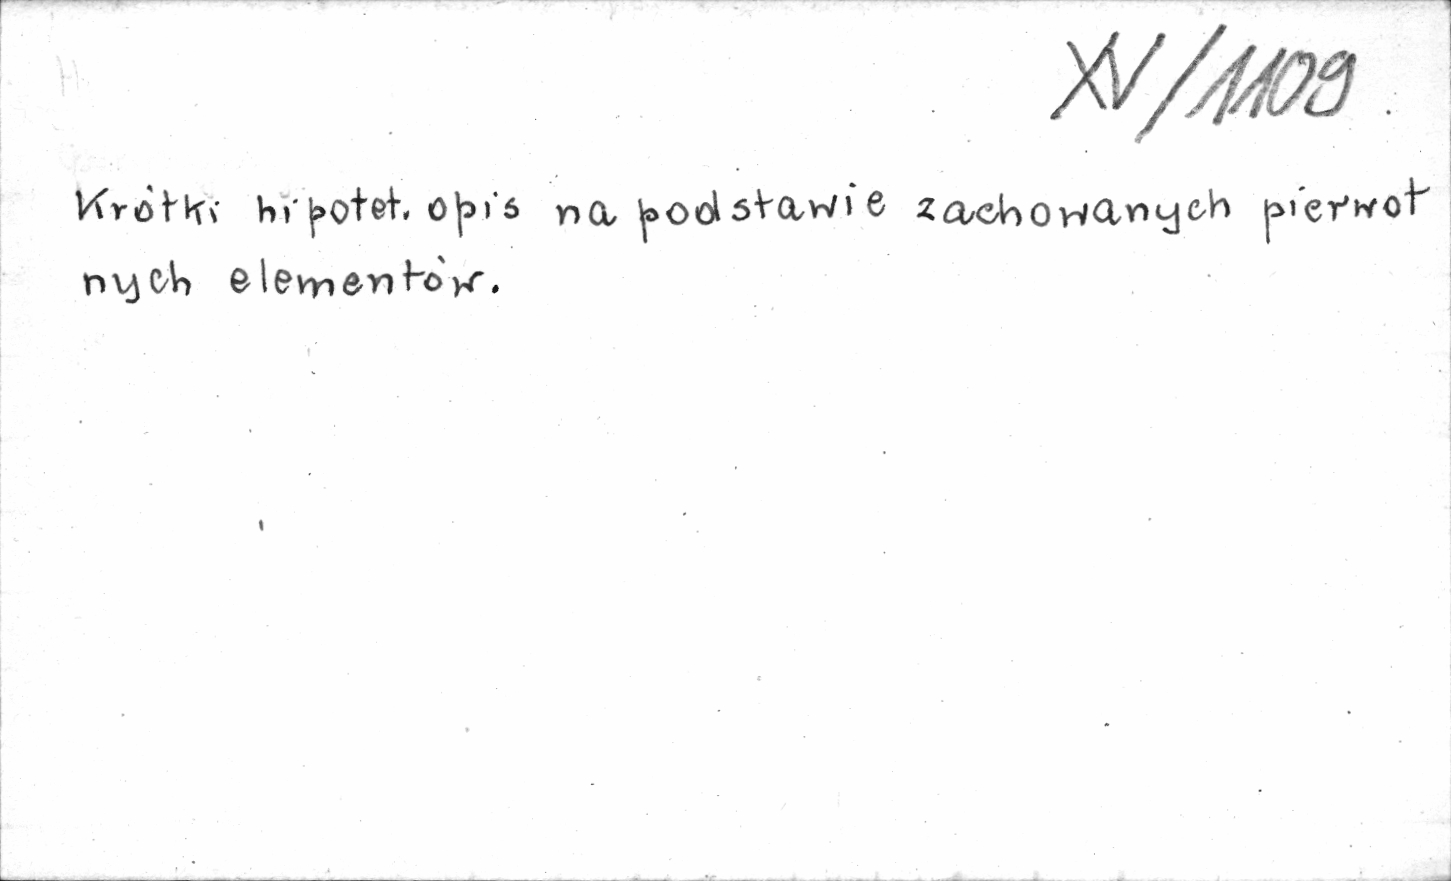 XV/1109
Krótki hipotet. opis na podstawie zachowanych pierwot
nych elementów.